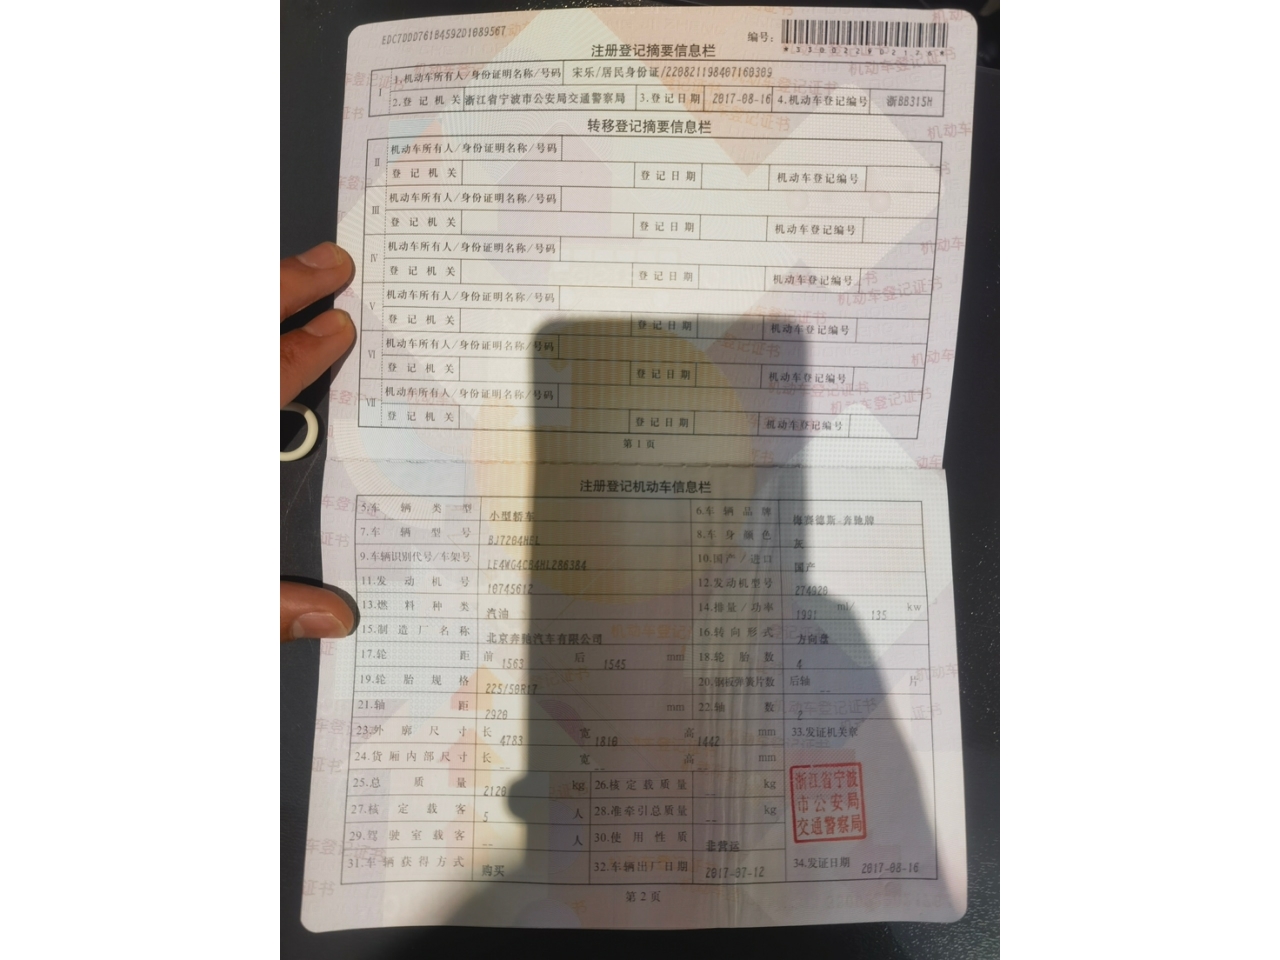 EDC7000761845920108956?
编号：
注册登记摘要信息栏
I 1.机动车所有人/身份证明名称/号码 宋乐/居民身份证/220821198407160309
2.登记机关 浙江省宁波市公安局交通警察局 3.登记日期 2017-08-16 4.机动车登记编号 浙BB315H
转移登记摘要信息栏
II 机动车所有人/身份证明名称/号码
登记机关 登记日期 机动车登记编号
III 机动车所有人/身份证明名称/号码
登记机关 登记日期 机动车登记编号
IV 机动车所有人/身份证明名称/号码
登记机关 登记日期 机动车登记编号
V 机动车所有人/身份证明名称/号码
登记机关 登记日期 机动车登记编号
VI 机动车所有人/身份证明名称/号码
登记机关 登记日期 机动车登记编号
VII 机动车所有人/身份证明名称/号码
登记机关 登记日期 机动车登记编号
第 1 页
注册登记机动车信息栏
5.车辆类型 小型轿车 6.车辆品牌 梅赛德斯-奔驰牌
7.车辆型号 BJ7204HEL 8.车身颜色 灰
9.车辆识别代号/车架号 LE4WG4CB4HL286384 10.国产/进口 国产
11.发动机号 10745612 12.发动机型号 274920
13.燃料种类 汽油 14.排量/功率 1991 ml/ 135 kw
15.制造厂名称 北京奔驰汽车有限公司 16.转向形式 方向盘
17.轮距 前 1563 后 1545 mm 18.轮胎数 4
19.轮胎规格 225/50R17 20.钢板弹簧片数 后轴 -- 片
21.轴距 2920 mm 22.轴数 2
23.外廓尺寸 长 4783 宽 1810 高 1442 mm 33.发证机关章
24.货厢内部尺寸 长 -- 宽 -- 高 -- mm
25.总质量 2120 kg 26.核定载质量 -- kg
27.核定载客 5 人 28.准牵引总质量 -- kg
29.驾驶室载客 -- 人 30.使用性质 非营运
31.车辆获得方式 购买 32.车辆出厂日期 2017-07-12 34.发证日期 2017-08-16
浙江省宁波
市公安局
交通警察局
第 2 页